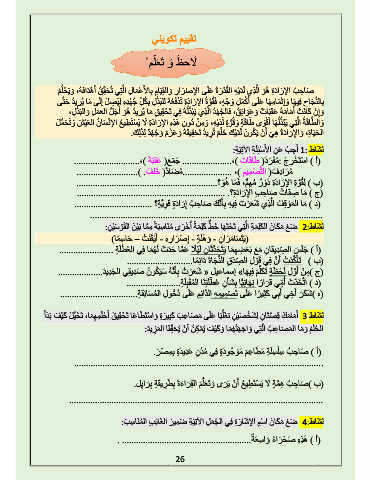 تقييم تكويني
لَاحِظْ وَ تَعلَّمْ
صَاحِبُ الإِرَادَةِ هُوَ الَّذِي لَدَيْهِ القُدْرَةُ عَلَى الإِصْرَارِ وَالقِيَامِ بِالأَعْمَالِ الَّتِي تُحَقِّقُ أَهْدَافَهُ، وَيَحْلُمُ
بِالنَّجَاحِ فِيهَا وَإِتْمَامِهَا عَلَى أَكْمَلِ وَجْهٍ، فَقُوَّةُ الإِرَادَةِ تَدْفَعُهُ لِلْبَذْلِ بِكُلِّ جُهْدِهِ لِيَصِلَ إِلَى مَا يُرِيدُ حَتَّى
وَإِنْ كَانَتْ أَمَامَهُ عَقَبَاتٌ وَعَوَائِقُ، فَالجُهْدُ الَّذِي يَبْذُلُهُ فِي تَحْقِيقِ مَا يُرِيدُ هُوَ أَجَلُّ العَمَلِ وَالبَذْلِ،
وَالطَّاقَةُ الَّتِي يَبْذُلُهَا أَقْوَى طَاقَةٍ وَقُوَّةٍ لَدَيْهِ، وَمِنْ دُونِ هَذِهِ الإِرَادَةِ لَا يَسْتَطِيعُ الإِنْسَانُ العَيْشَ وَتَحَمُّلَ
الحَيَاةِ، وَالإِرَادَةُ هِيَ أَنْ يَكُونَ لَدَيْكَ حُلْمٌ تُرِيدُ تَحْقِيقَهُ وَعَزْمٌ وَجُهْدٌ لِذَلِكَ.
نَشَاط 1: أَجِبْ عَنِ الأَسْئِلَةِ الآتِيَةِ:
(أ ) اسْتَخْرِجْ :مُفْرَدَ( طَاقَات )،.................جَمْعَ( عَقَبَة )،.................
مُرَادِفَ( التَّصْمِيم ) ،.................مُضَادَّ( خَلْف )،.................
(ب ) لِقُوَّةِ الإِرَادَةِ دَوْرٌ مُهِمٌّ، فَمَا هُوَ؟.................
(ج ) مَا صِفَاتُ صَاحِبِ الإِرَادَةِ؟.................
(د ) مَا المَوْقِفُ الَّذِي شَعَرْتَ فِيهِ بِأَنَّكَ صَاحِبُ إِرَادَةٍ قَوِيَّةٍ؟.................
نَشَاط 2: ضَعْ مَكَانَ الكَلِمَةِ الَّتِي تَحْتَهَا خَطٌّ كَلِمَةً أُخْرَى مُنَاسِبَةً مِمَّا بَيْنَ القَوْسَيْنِ:
(يَتَسَامَرَانِ - وَهْلَةٍ - إِصْرَارِهِ - أَيْقَنْتُ – حَاسِمًا)
(أ ) جَلَسَ الصَّدِيقَانِ مَعَ بَعْضِهِمَا يَتَحَدَّثَانِ لَيْلًا عَمَّا حَدَثَ لَهُمَا فِي العُطْلَةِ.................
(ب ) تَأَكَّدْتُ أَنَّ فِي قَوْلِ الصِّدْقِ النَّجَاةَ دَائِمًا.................
(ج )مِنْ أَوَّلِ لَحْظَةٍ تَكَلَّمَ فِيهَا« إسماعيل » شَعَرْتُ بِأَنَّهُ سَيَكُونُ صَدِيقِي الجَدِيدَ.................
(د ) اتَّخَذْتُ أُمِّي قَرَارًا نِهَائِيًّا بِشَأْنِ عُطْلَتِنَا المُقْبِلَةِ.................
(ه )شَكَرَ أَخِي أَبِي كَثِيرًا عَلَى تَصْمِيمِهِ الدَّائِمِ عَلَى دُخُولِ المُسَابَقَةِ.................
نَشَاط 3 أَمَامَكَ قِصَّتَانِ لِشَخْصَيْنِ تَغَلَّبَا عَلَى مَصَاعِبَ كَبِيرَةٍ وَاسْتَطَاعَا تَحْقِيقَ أَحْلَامِهِمَا، تَخَيَّلْ كَيْفَ بَدَأَ
الحُلْمُ وَمَا المَصَاعِبُ الَّتِي وَاجَهَتْهُمَا وَكَيْفَ يُمْكِنُ أَنْ يُحَقِّقَا المَزِيدَ:
(أ ) صَاحِبُ سِلْسِلَةِ مَطَاعِمَ مَوْجُودَةٍ فِي مُدُنٍ عَدِيدَةٍ بِمِصْرَ.
(ب )صَاحِبُ هِمَّةٍ لَا يَسْتَطِيعُ أَنْ يَرَى وَتَعَلَّمَ القِرَاءَةَ بِطَرِيقَةِ بِرَايِل.
نَشَاط 4: ضَعْ مَكَانَ اسْمِ الإِشَارَةِ فِي الجُمَلِ الآتِيَةِ ضَمِيرَ الغَائِبِ المُنَاسِبَ:
(أ ) هَذِهِ صَحْرَاءُ وَاسِعَةٌ.................
26